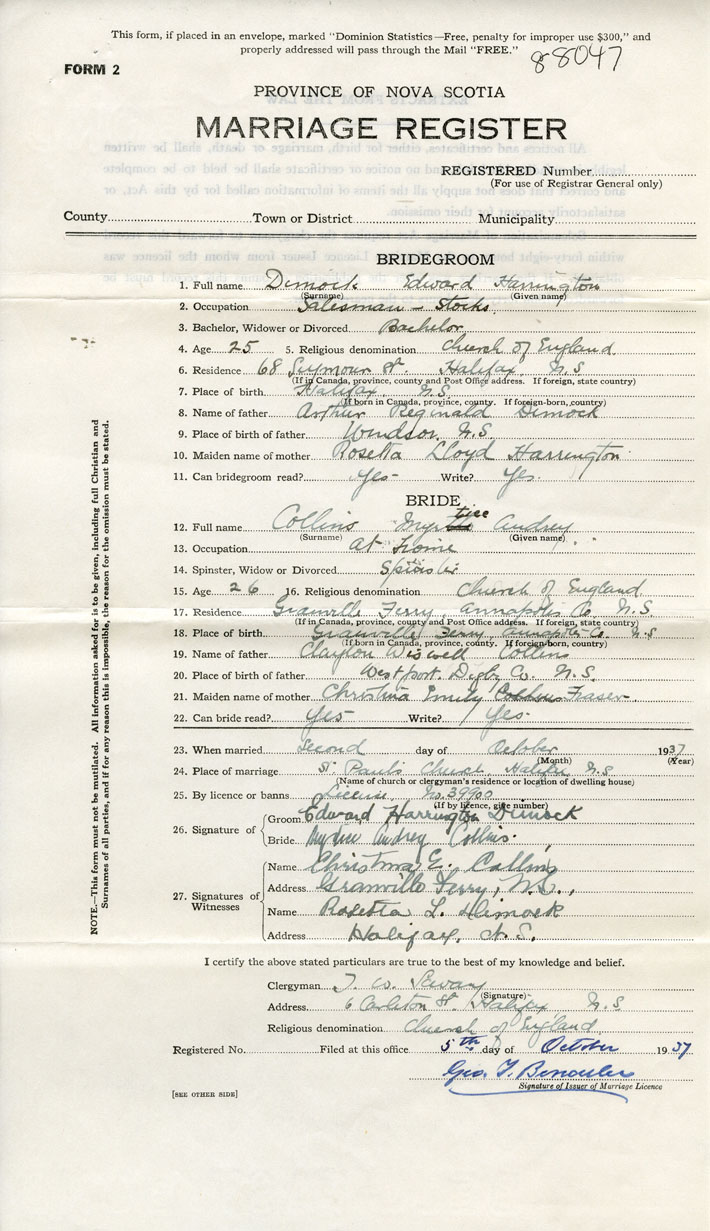 This form, if placed in an envelope, marked "Dominion Statistics—Free, penalty for improper use $300," and
properly addressed will pass through the Mail "FREE."
88047
FORM 2
PROVINCE OF NOVA SCOTIA
MARRIAGE REGISTER
REGISTERED Number
(For use of Registrar General only)
County Town or District Municipality
BRIDEGROOM
1. Full name Dimock Edward Harrington
(Surname) (Given name)
2. Occupation Salesman - Stocks
3. Bachelor, Widower or Divorced Bachelor
4. Age 25 5. Religious denomination Church of England
6. Residence 68 Seymour St. Halifax N.S
(If in Canada, province, county and Post Office address. If foreign, state country)
7. Place of birth Halifax N.S.
(If born in Canada, province, county. If foreign-born, country)
8. Name of father Arthur Reginald Dimock
9. Place of birth of father Windsor N.S
10. Maiden name of mother Rosetta Lloyd Harrington
11. Can bridegroom read? Yes Write? Yes
BRIDE
12. Full name Collins Myrtice Audrey
(Surname) (Given name)
13. Occupation at Home
14. Spinster, Widow or Divorced Spinster
15. Age 26 16. Religious denomination Church of England
17. Residence Granville Ferry, Annapolis Co N.S
(If in Canada, province, county and Post Office address. If foreign, state country)
18. Place of birth Granville Ferry Annapolis Co. N.S
(If born in Canada, province, county. If foreign-born, country)
19. Name of father Clayton Wiswell Collins
20. Place of birth of father Westport. Digby Co. N.S.
21. Maiden name of mother Christina Emily Collins Fraser
22. Can bride read? Yes Write? Yes.
23. When married Second day of October 1937
(Month) (Year)
24. Place of marriage St. Paul's Church, Halifax N.S
(Name of church or clergyman's residence or location of dwelling house)
25. By licence or banns License No. 39900
(If by licence, give number)
26. Signature of Groom Edward Harrington Dimock
Bride Myrtice Audrey Collins.
27. Signatures of Witnesses
Name Christina E. Collins
Address Granville Ferry, N.S.,
Name Rosetta L. Dimock
Address Halifax, N.S.
I certify the above stated particulars are true to the best of my knowledge and belief.
Clergyman T. W. Savary
(Signature)
Address 6 Carleton St. Halifax N.S
Religious denomination Church of England
Registered No. Filed at this office 5th day of October 1937
Geo.
Signature of Issuer of Marriage Licence
[SEE OTHER SIDE]
NOTE.—This form must not be mutilated. All information asked for is to be given, including full Christian and
Surnames of all parties, and if for any reason this is impossible, the reason for the omission must be stated.